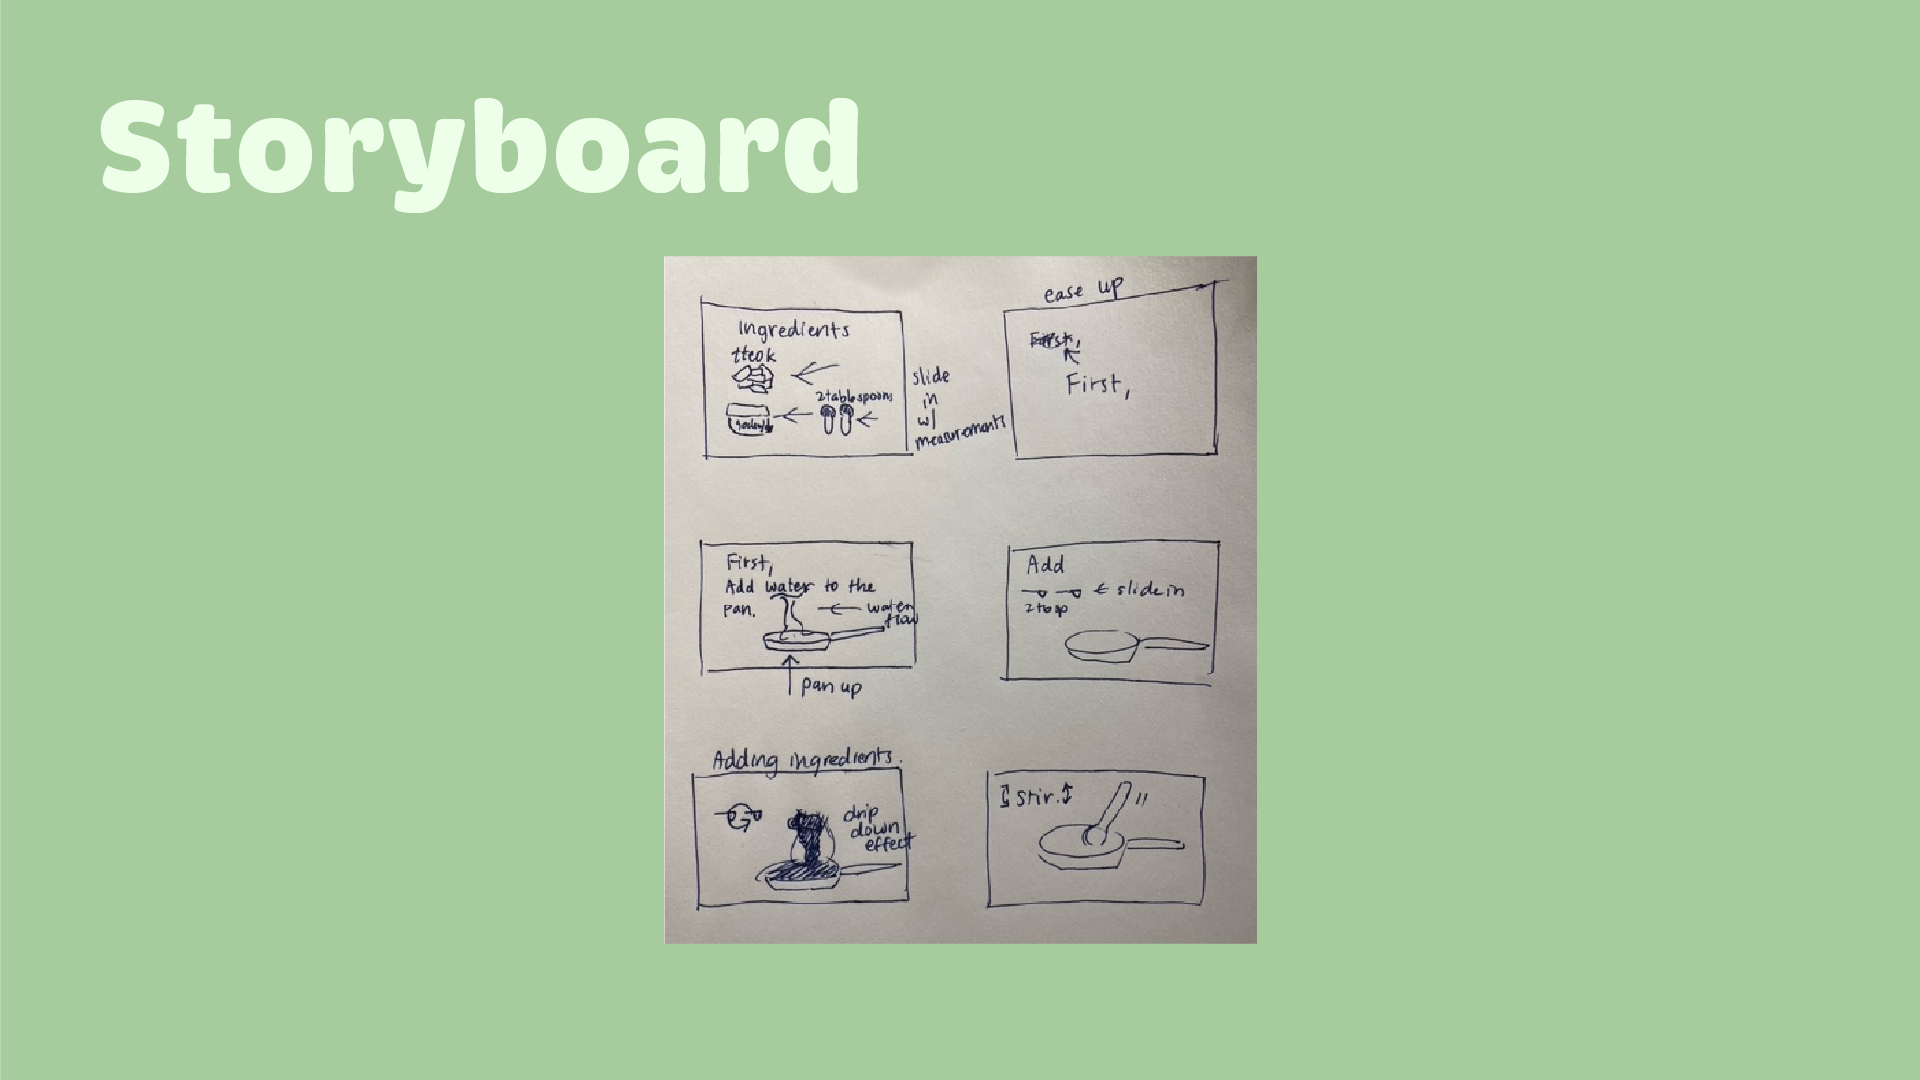 Storyboard
Ingredients
tteok
2 tablespoons
slide
in
w/
measurements
ease up
First,
First,
First,
Add water to the
pan.
water
flow
pan up
Add
slide in
2 tbsp
Adding ingredients.
drip
down
effect
Stir.